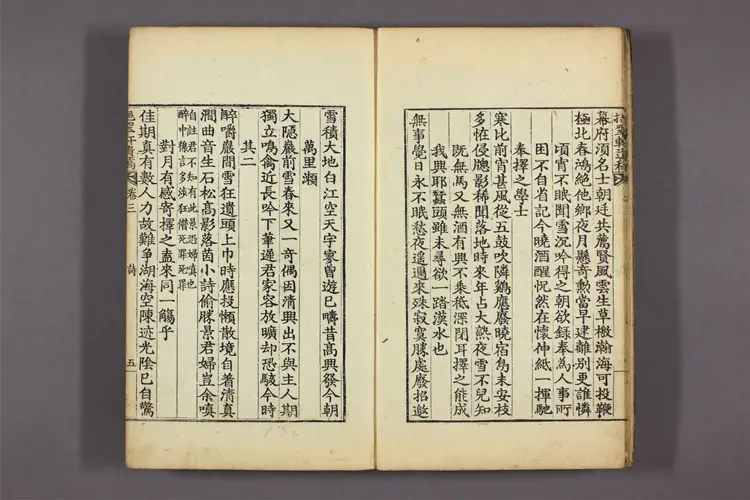 幕府須名士朝廷共薦賢風雲生草檄瀚海可投鞭
極北春鴻絶他鄉夜月懸奇勲當早建離别更誰憐
頃宵不眠聞雪沉吟得之朝欲錄奉為人事所
困不自省記今曉酒醒怳然在懷伸紙一揮馳
奉擇之學士
寒比前宵甚風從五鼓吹隣鷄應廢曉宿鳥未安枝
多怪侵牕影稀聞落地時來年占大熟夜雪不兒知
既無馬又無酒有興不乘秪深閉耳擇之能成
我興耶蠶頭雖未尋欲一路漢水也
無事覺日永不眠愁夜遥邇來殊寂寞勝處廢招邀
雪積大地白江空天宇寥曽遊已疇昔高興發今朝
萬里瀬
大隱巖前雪春來又一奇偶因清興出不與主人期
獨立鳴禽近長吟下筆遲君家容放曠却恐駭今時
其二
醉嚼巖間雪狂遺頭上巾時應投懶散境自着清真
澗曲音生石松髙影落茵小詩偷勝景君婦豈余嗔
自註君不知有此景恐婦嗔也
醉中德言多涉狂僣死罪死罪
對月有感寄擇之盍來同一觴乎
佳期真有數人力故難爭湖海空陳迹光陰已自驚
挹翠軒遺稿
卷三
詩
五